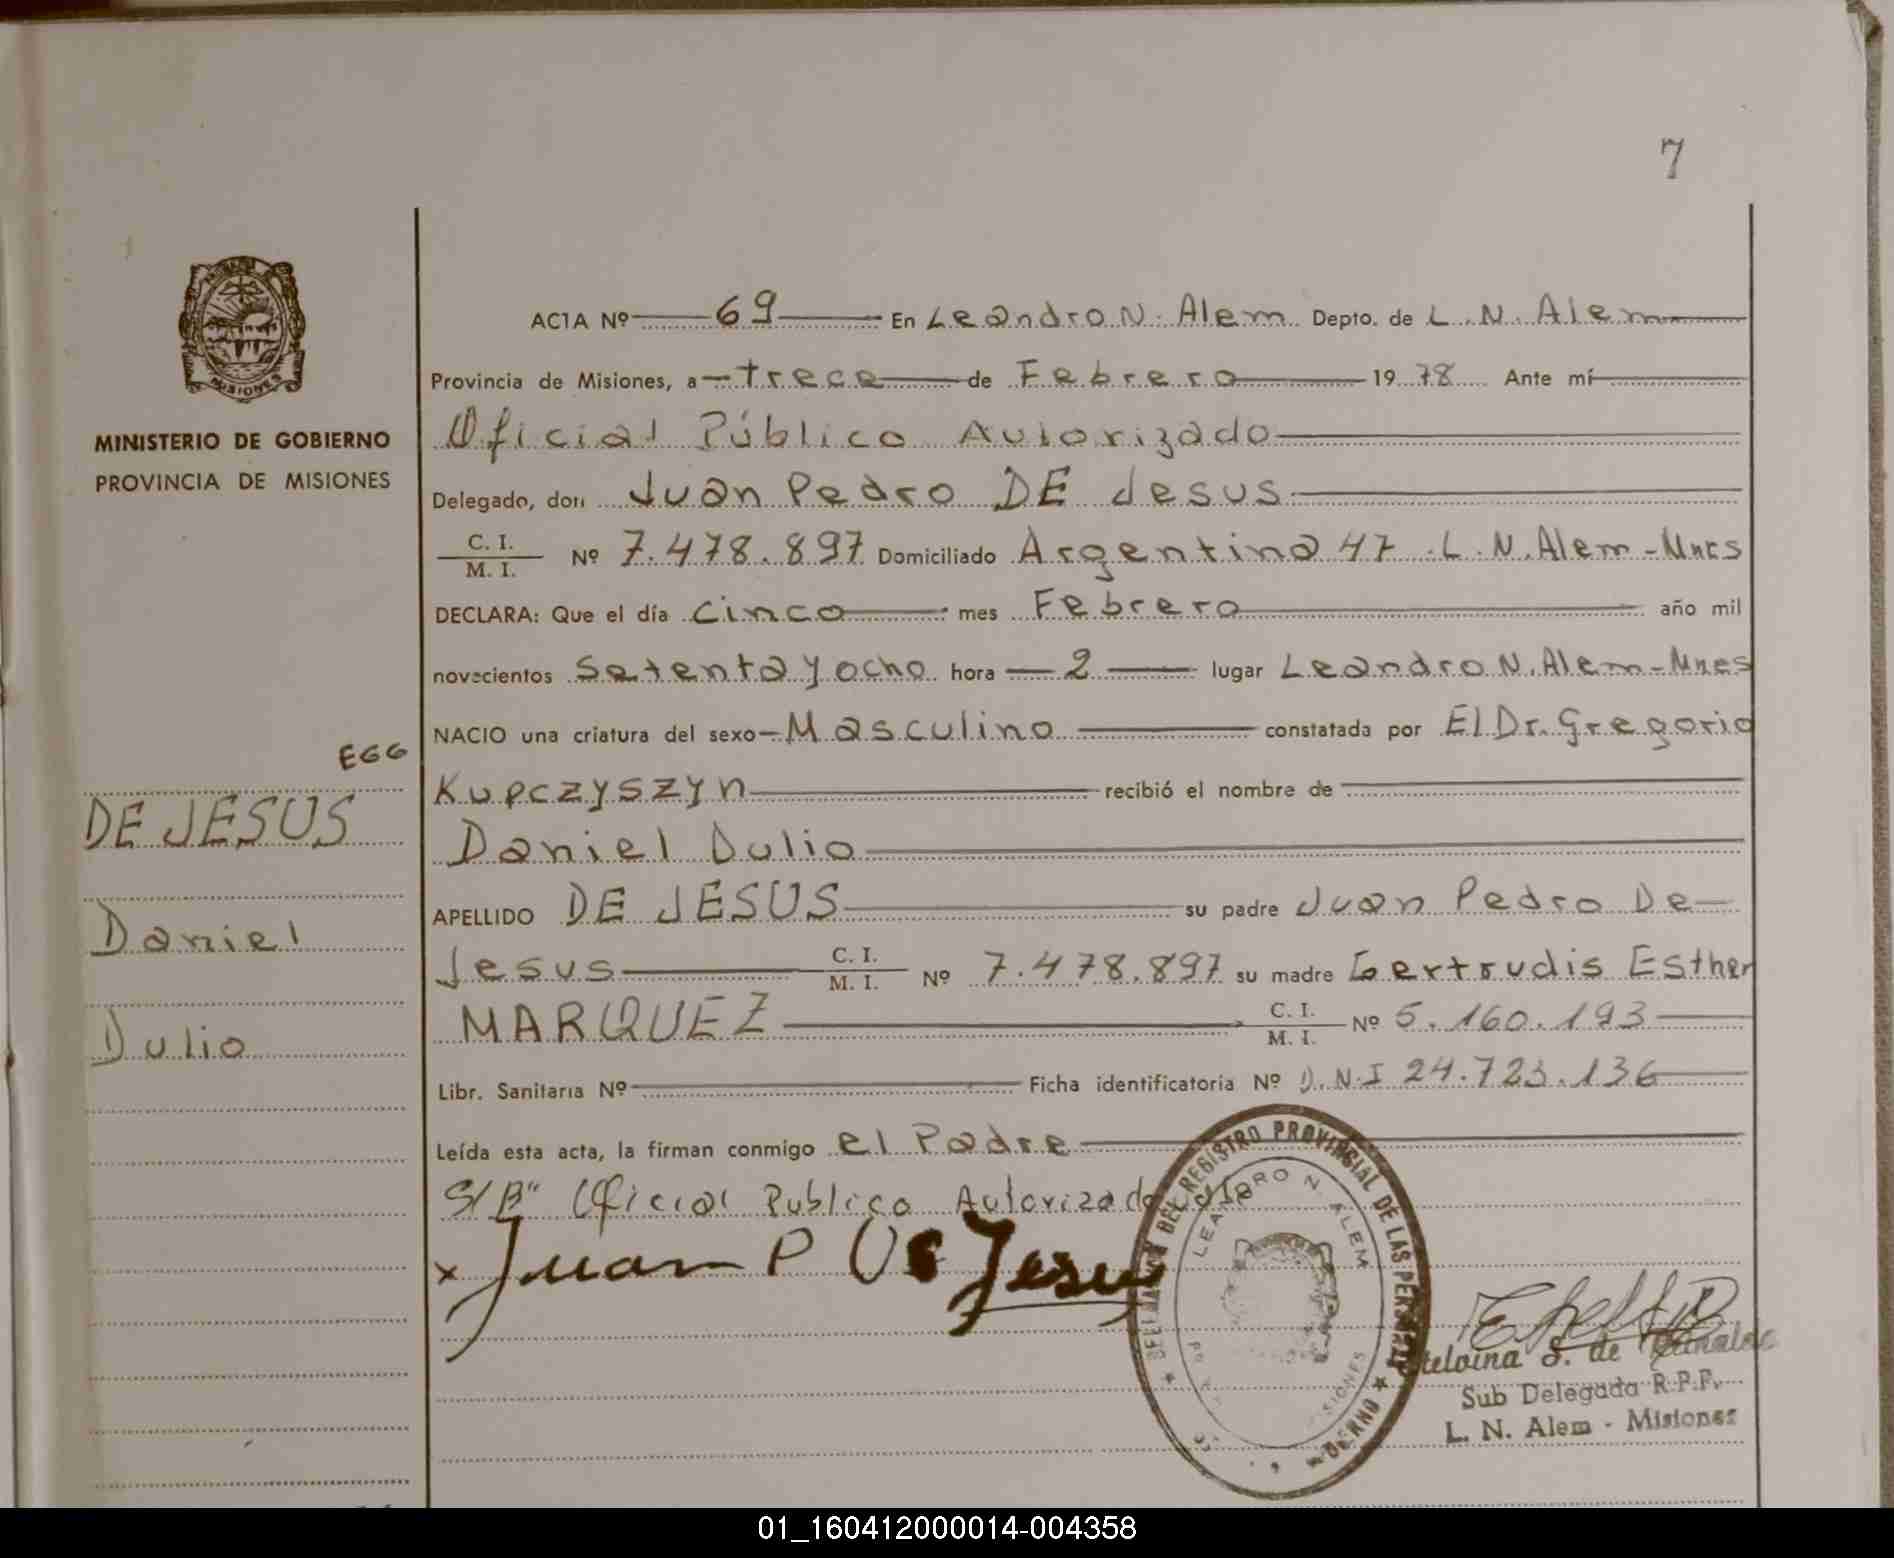 7
MISIONES
MINISTERIO DE GOBIERNO
PROVINCIA DE MISIONES
EGG
DE JESUS
Daniel
Dulio
ACTA Nº 69 En Leandro N. Alem Depto. de L. N. Alem
Provincia de Misiones, a trece de Febrero 19 78 Ante mí
Oficial Público Autorizado
Delegado, don Juan Pedro DE Jesus
C. I. / M. I. Nº 7.478.897 Domiciliado Argentina 47 L. N. Alem - Mnes
DECLARA: Que el día cinco mes Febrero año mil
novecientos Setenta y ocho hora 2 lugar Leandro N. Alem - Mnes
NACIO una criatura del sexo Masculino constatada por El Dr. Gregorio
Kupczyszyn recibió el nombre de
Daniel Dulio
APELLIDO DE JESUS su padre Juan Pedro De
Jesus C. I. / M. I. Nº 7.478.897 su madre Gertrudis Esther
MARQUEZ C. I. / M. I. Nº 5.160.193
Libr. Sanitaria Nº Ficha identificatoria Nº D.N.I 24.723.136
Leída esta acta, la firman conmigo el Padre
S/B" Oficial Publico Autorizado
x Juan P De Jesus
DEL REGISTRO PROVINCIAL DE LAS
LEANDRO N. ALEM
MISIONES
S. de
Sub Delegada R.P.P.
L. N. Alem - Misiones
01_160412000014-004358